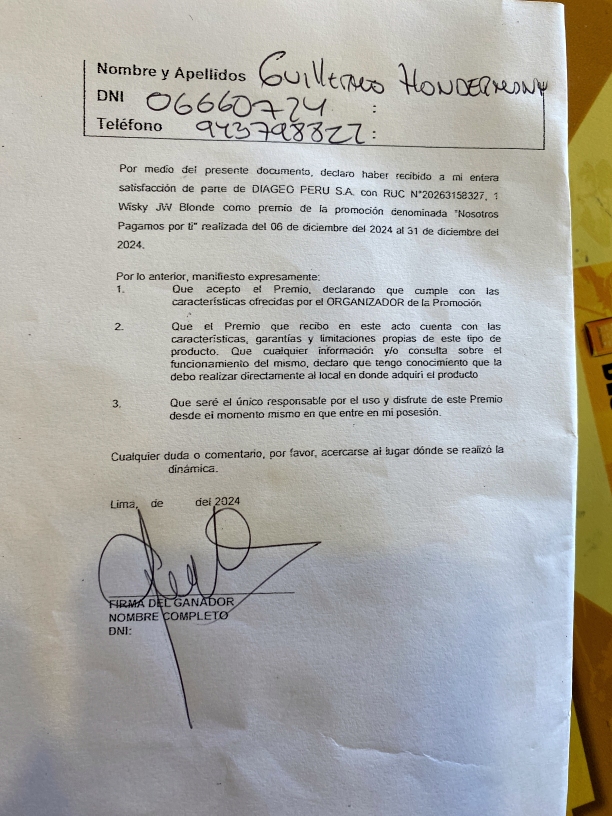 Nombre y Apellidos Guillermo Hondermony
DNI 06660724 :
Teléfono 943798822 :
Por medio del presente documento, declaro haber recibido a mi entera
satisfacción de parte de DIAGEO PERU S.A. con RUC N°20263158327, 1
Wisky JW Blonde como premio de la promoción denominada "Nosotros
Pagamos por ti" realizada del 06 de diciembre del 2024 al 31 de diciembre del
2024.
Por lo anterior, manifiesto expresamente:
1. Que acepto el Premio, declarando que cumple con las
características ofrecidas por el ORGANIZADOR de la Promoción
2. Que el Premio que recibo en este acto cuenta con las
características, garantías y limitaciones propias de este tipo de
producto. Que cualquier información y/o consulta sobre el
funcionamiento del mismo, declaro que tengo conocimiento que la
debo realizar directamente al local en donde adquirí el producto
3. Que seré el único responsable por el uso y disfrute de este Premio
desde el momento mismo en que entre en mi posesión.
Cualquier duda o comentario, por favor, acercarse al lugar dónde se realizó la
dinámica.
Lima, de del 2024
FIRMA DEL GANADOR
NOMBRE COMPLETO
DNI: